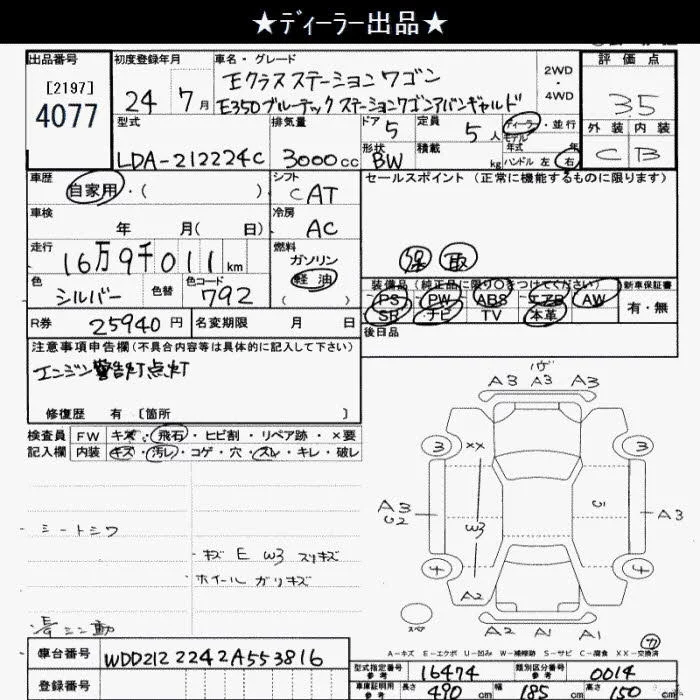 ★ディーラー出品★
出品番号 初度登録年月 車名・グレード 評価点
[2197] Eクラスステーションワゴン 2WD
4077 24年 7月 E350ブルーテック ステーションワゴンアバンギャルド ・4WD 35
型式 排気量 ドア 5 定員 5人 ディーラー・並行 外装 内装
モデル年式 年
LDA-212224C 3000cc 形状 BW 積載 kg ハンドル 左 右 C B
車歴 自家用・( ) シフト CAT セールスポイント (正常に機能するものに限ります)
車検 年 月( 日) 冷房 AC
走行 16万9千011km 燃料 ガソリン 保 取
軽油
( )
色 シルバー 色替 色コード 792 装備品(純正品に限り○をつけてください) 新車保証書
PS PW ABS エアB AW 有・無
SR ナビ TV 本革
R券 25940円 名変期限 月 日 後日品
注意事項申告欄(不具合内容等は具体的に記入して下さい)
エンジン警告灯点灯
修復歴 有 〔箇所 〕
検査員 FW キズ・飛石・ヒビ割・リペア跡・×要
記入欄 内装 キズ・汚レ・コゲ・穴・スレ・キレ・破レ
A3 A3 A3
3 XX 3
A3 G2 W3 G1 A3
4 A2 4
A2 A1 A1
スペア
・シートシワ
・キズ E W3 スリキズ
・ホイールガリキズ
A-キズ E-エクボ U-凹み W-補修跡 S-サビ C-腐食 XX-交換済
車台番号 WDD2122242A553816
登録番号
型式指定番号 参考 16474 類別区分番号 参考 0014
車庫証明用 参考 長さ 490cm 幅 185cm 高さ 150cm